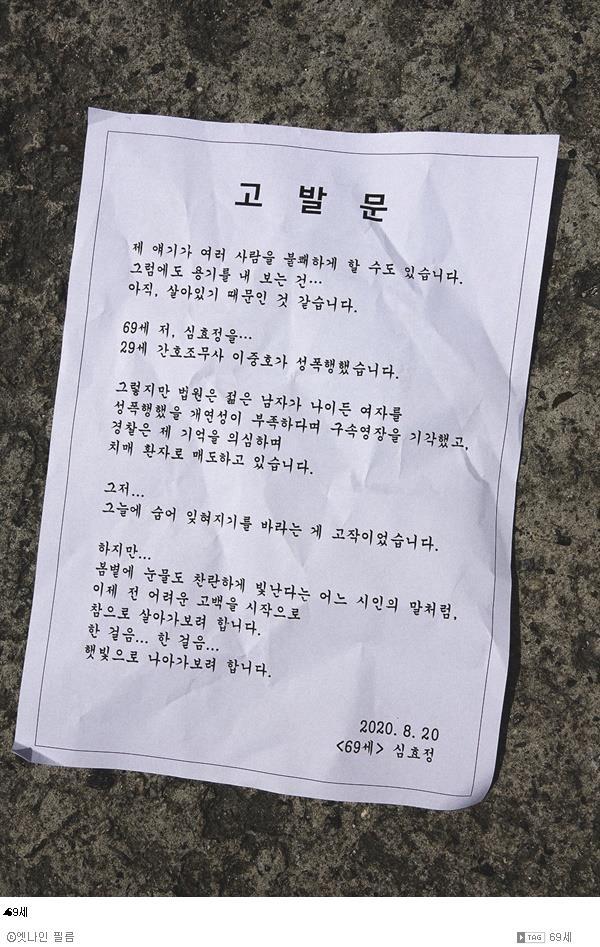 고 발 문
제 얘기가 여러 사람을 불쾌하게 할 수도 있습니다.
그럼에도 용기를 내 보는 건...
아직, 살아있기 때문인 것 같습니다.
69세 저, 심효정을...
29세 간호조무사 이중호가 성폭행했습니다.
그렇지만 법원은 젊은 남자가 나이든 여자를
성폭행했을 개연성이 부족하다며 구속영장을 기각했고,
경찰은 제 기억을 의심하며
치매 환자로 매도하고 있습니다.
그저...
그늘에 숨어 잊혀지기를 바라는 게 고작이었습니다.
하지만...
봄볕에 눈물도 찬란하게 빛난다는 어느 시인의 말처럼,
이제 전 어려운 고백을 시작으로
참으로 살아가보려 합니다.
한 걸음... 한 걸음...
햇빛으로 나아가보려 합니다.
2020. 8. 20
<69세> 심효정
69세
ⓒ엣나인 필름
TAG 69세